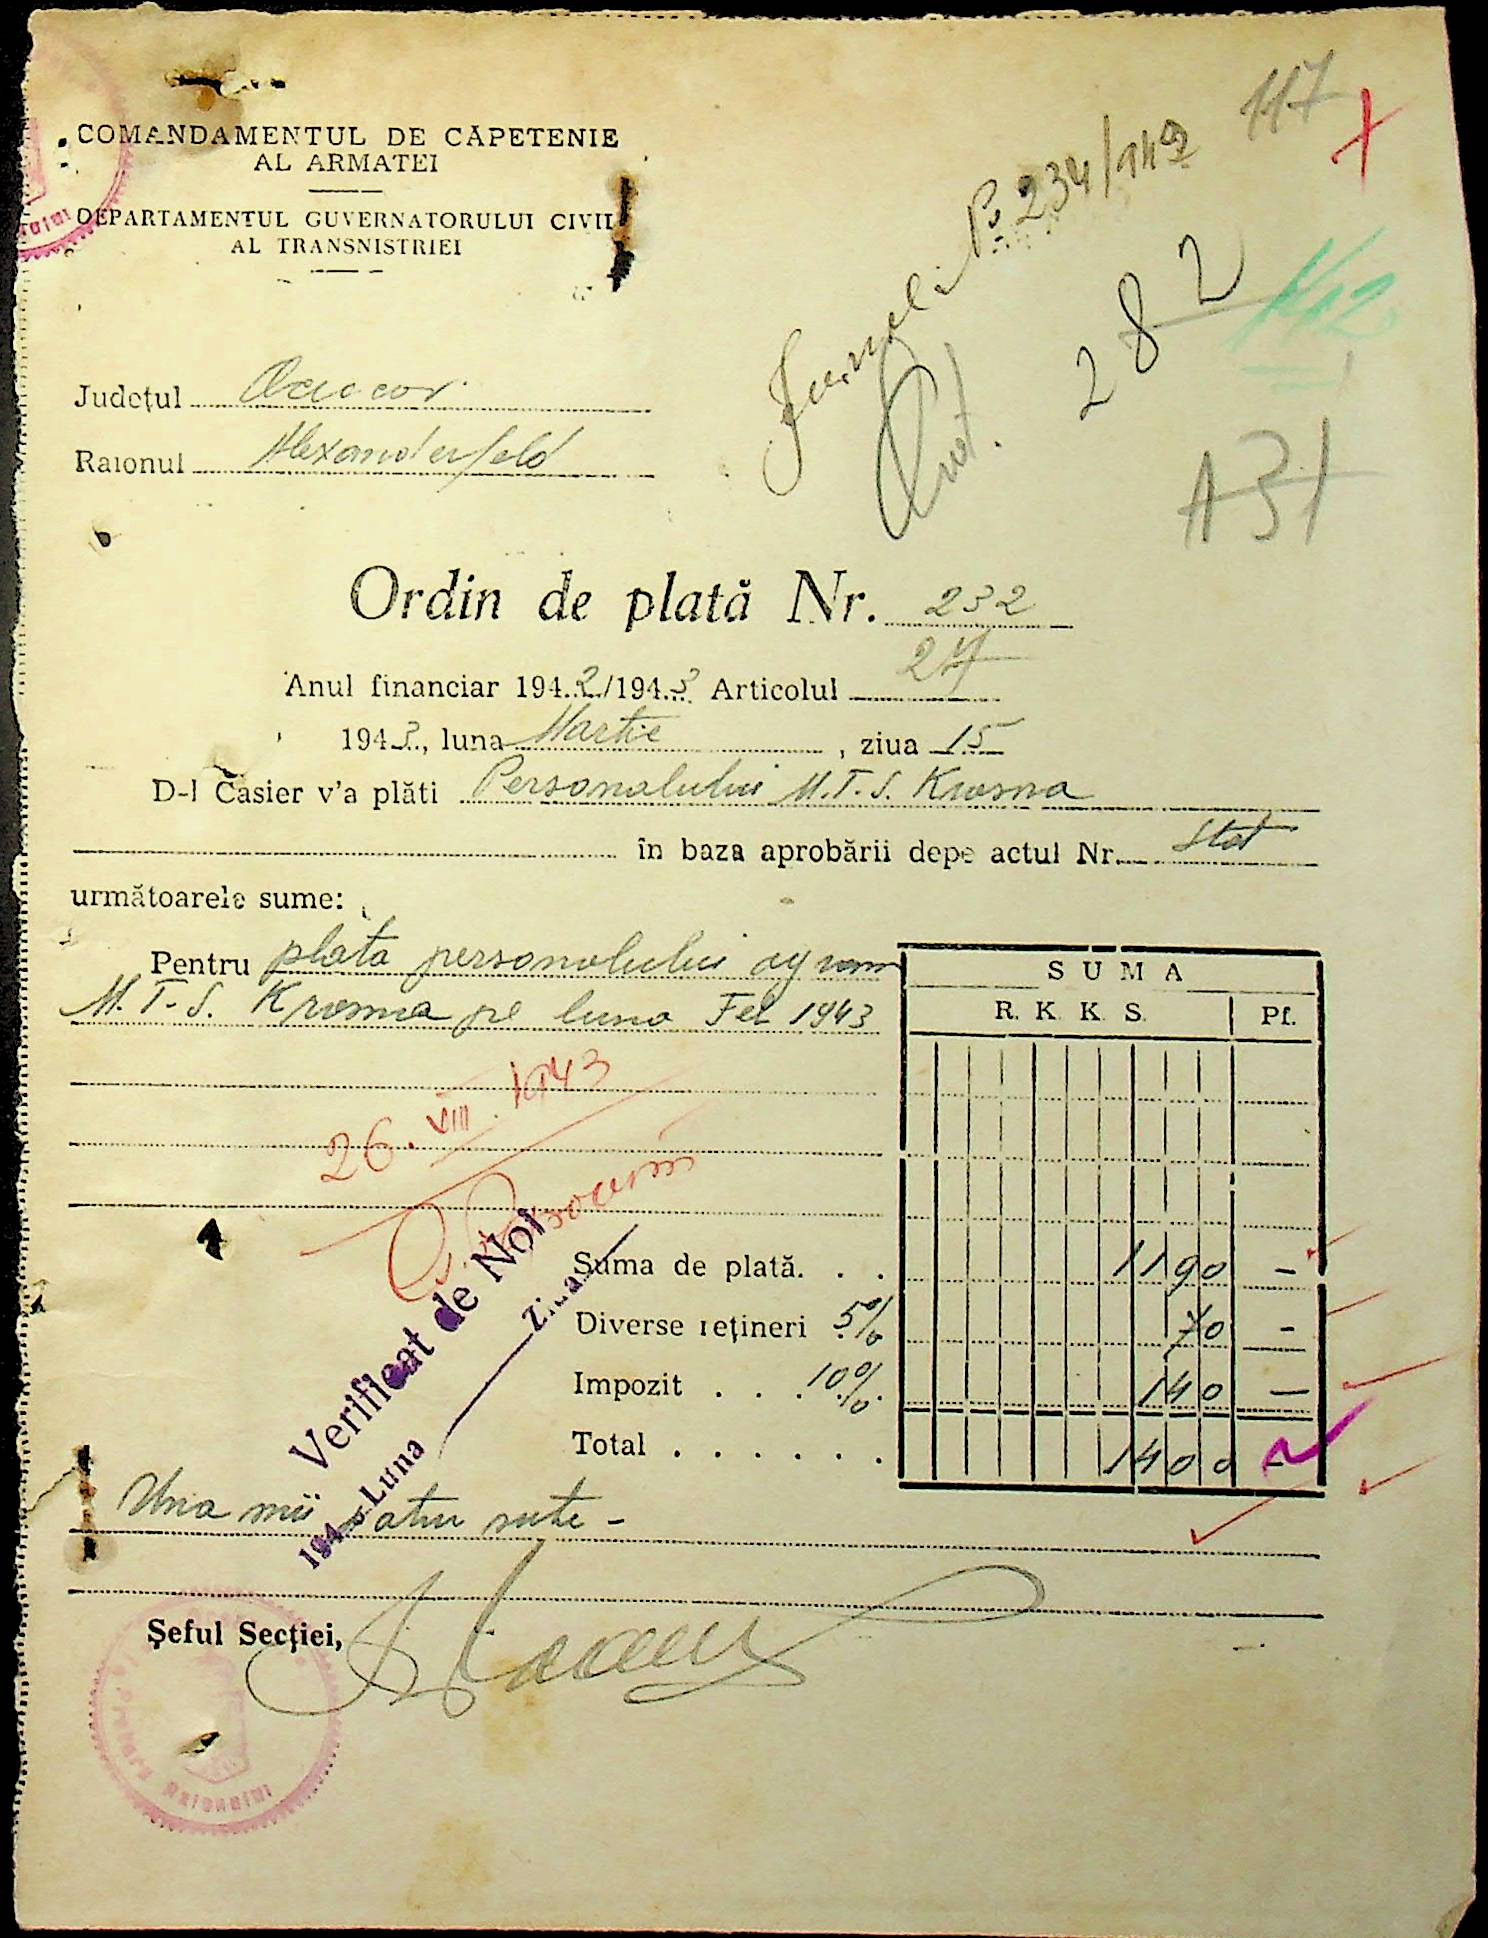 COMANDAMENTUL DE CAPETENIE
AL ARMATEI
DEPARTAMENTUL GUVERNATORULUI CIVIL
AL TRANSNISTRIEI
117
Jurnal P. 234/142
282
112
131
Județul
Raionul Alexanderfeld
Ordin de plată Nr. 232
Anul financiar 1942/1943 Articolul 27
1943, luna Martie, ziua 15
D-l Casier v'a plăti Personalului M.T.S. Krasna
în baza aprobării depe actul Nr. Stat
următoarele sume:
Pentru plata personalului agronom
M.T.S. Krasna pe luna Feb 1943
SUMA
R. K. K. S. Pf.
26.VIII.1943
Suma de plată. . . 1190 –
Diverse rețineri 5% 70 –
Impozit . . . 10% 140 –
Total . . . . . . 1400 –
Verificat de Noi
194 Luna Ziua
Una mii patru sute –
Șeful Secției,
Pretura Raionului